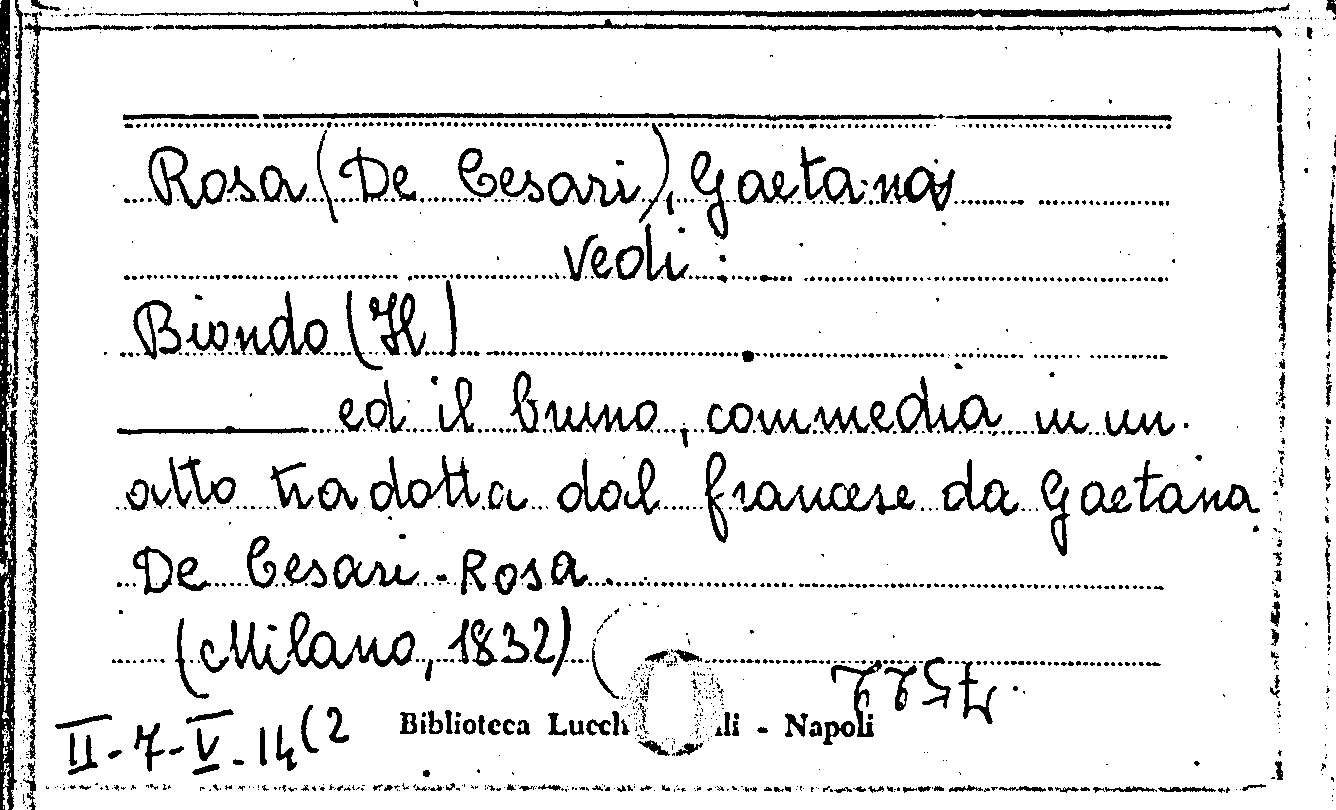 Rosa (De Cesari), Gaetana
vedi:
Biondo (Il)
ed il bruno, commedia in un
atto tradotta dal francese da Gaetana
De Cesari-Rosa.
(Milano, 1832)
7522
II-7-V-14(2
Biblioteca Lucch li - Napoli